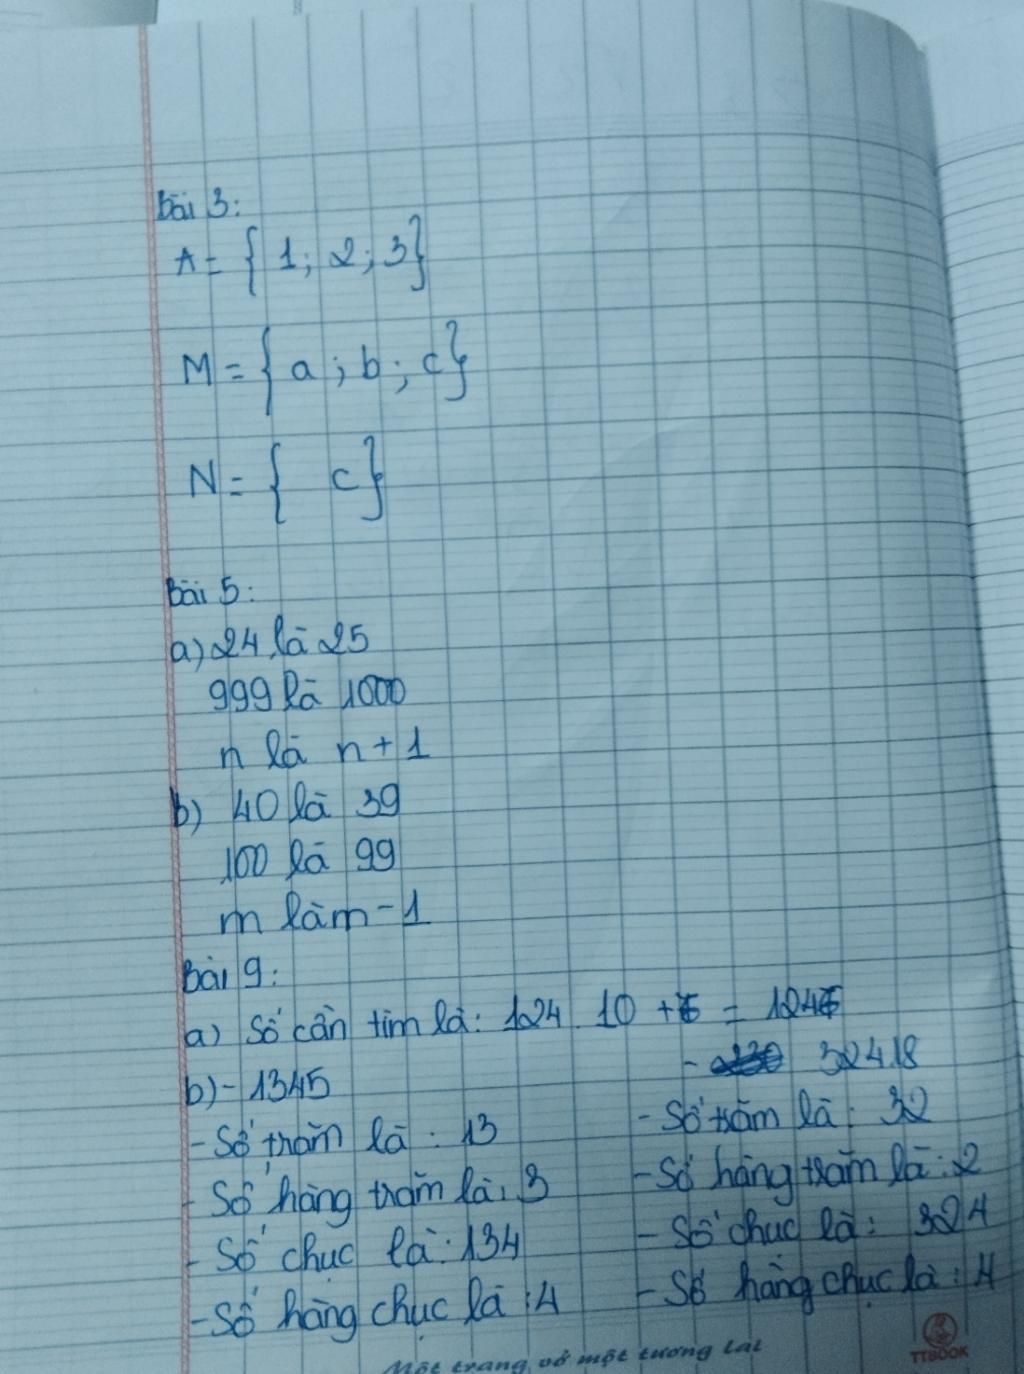 bài 3:
A = { 1; 2; 3}
M = { a ; b ; c}
N = { c}
Bài 5:
a) 24 là 25
999 là 1000
n là n + 1
b) 40 là 39
100 là 99
m là m - 1
Bài 9:
a) Số cần tìm là: 124 . 10 + 6 = 1246
b) - 1345
- 3241.8
- Số trăm là : 13
- Số trăm là : 32
- Số hàng trăm là : 3
- Số hàng trăm là : 2
- Số chục là : 134
- Số chục là : 324
- Số hàng chục là : 4
- Số hàng chục là : 4
Một trang vở một tương lai
TTBOOK